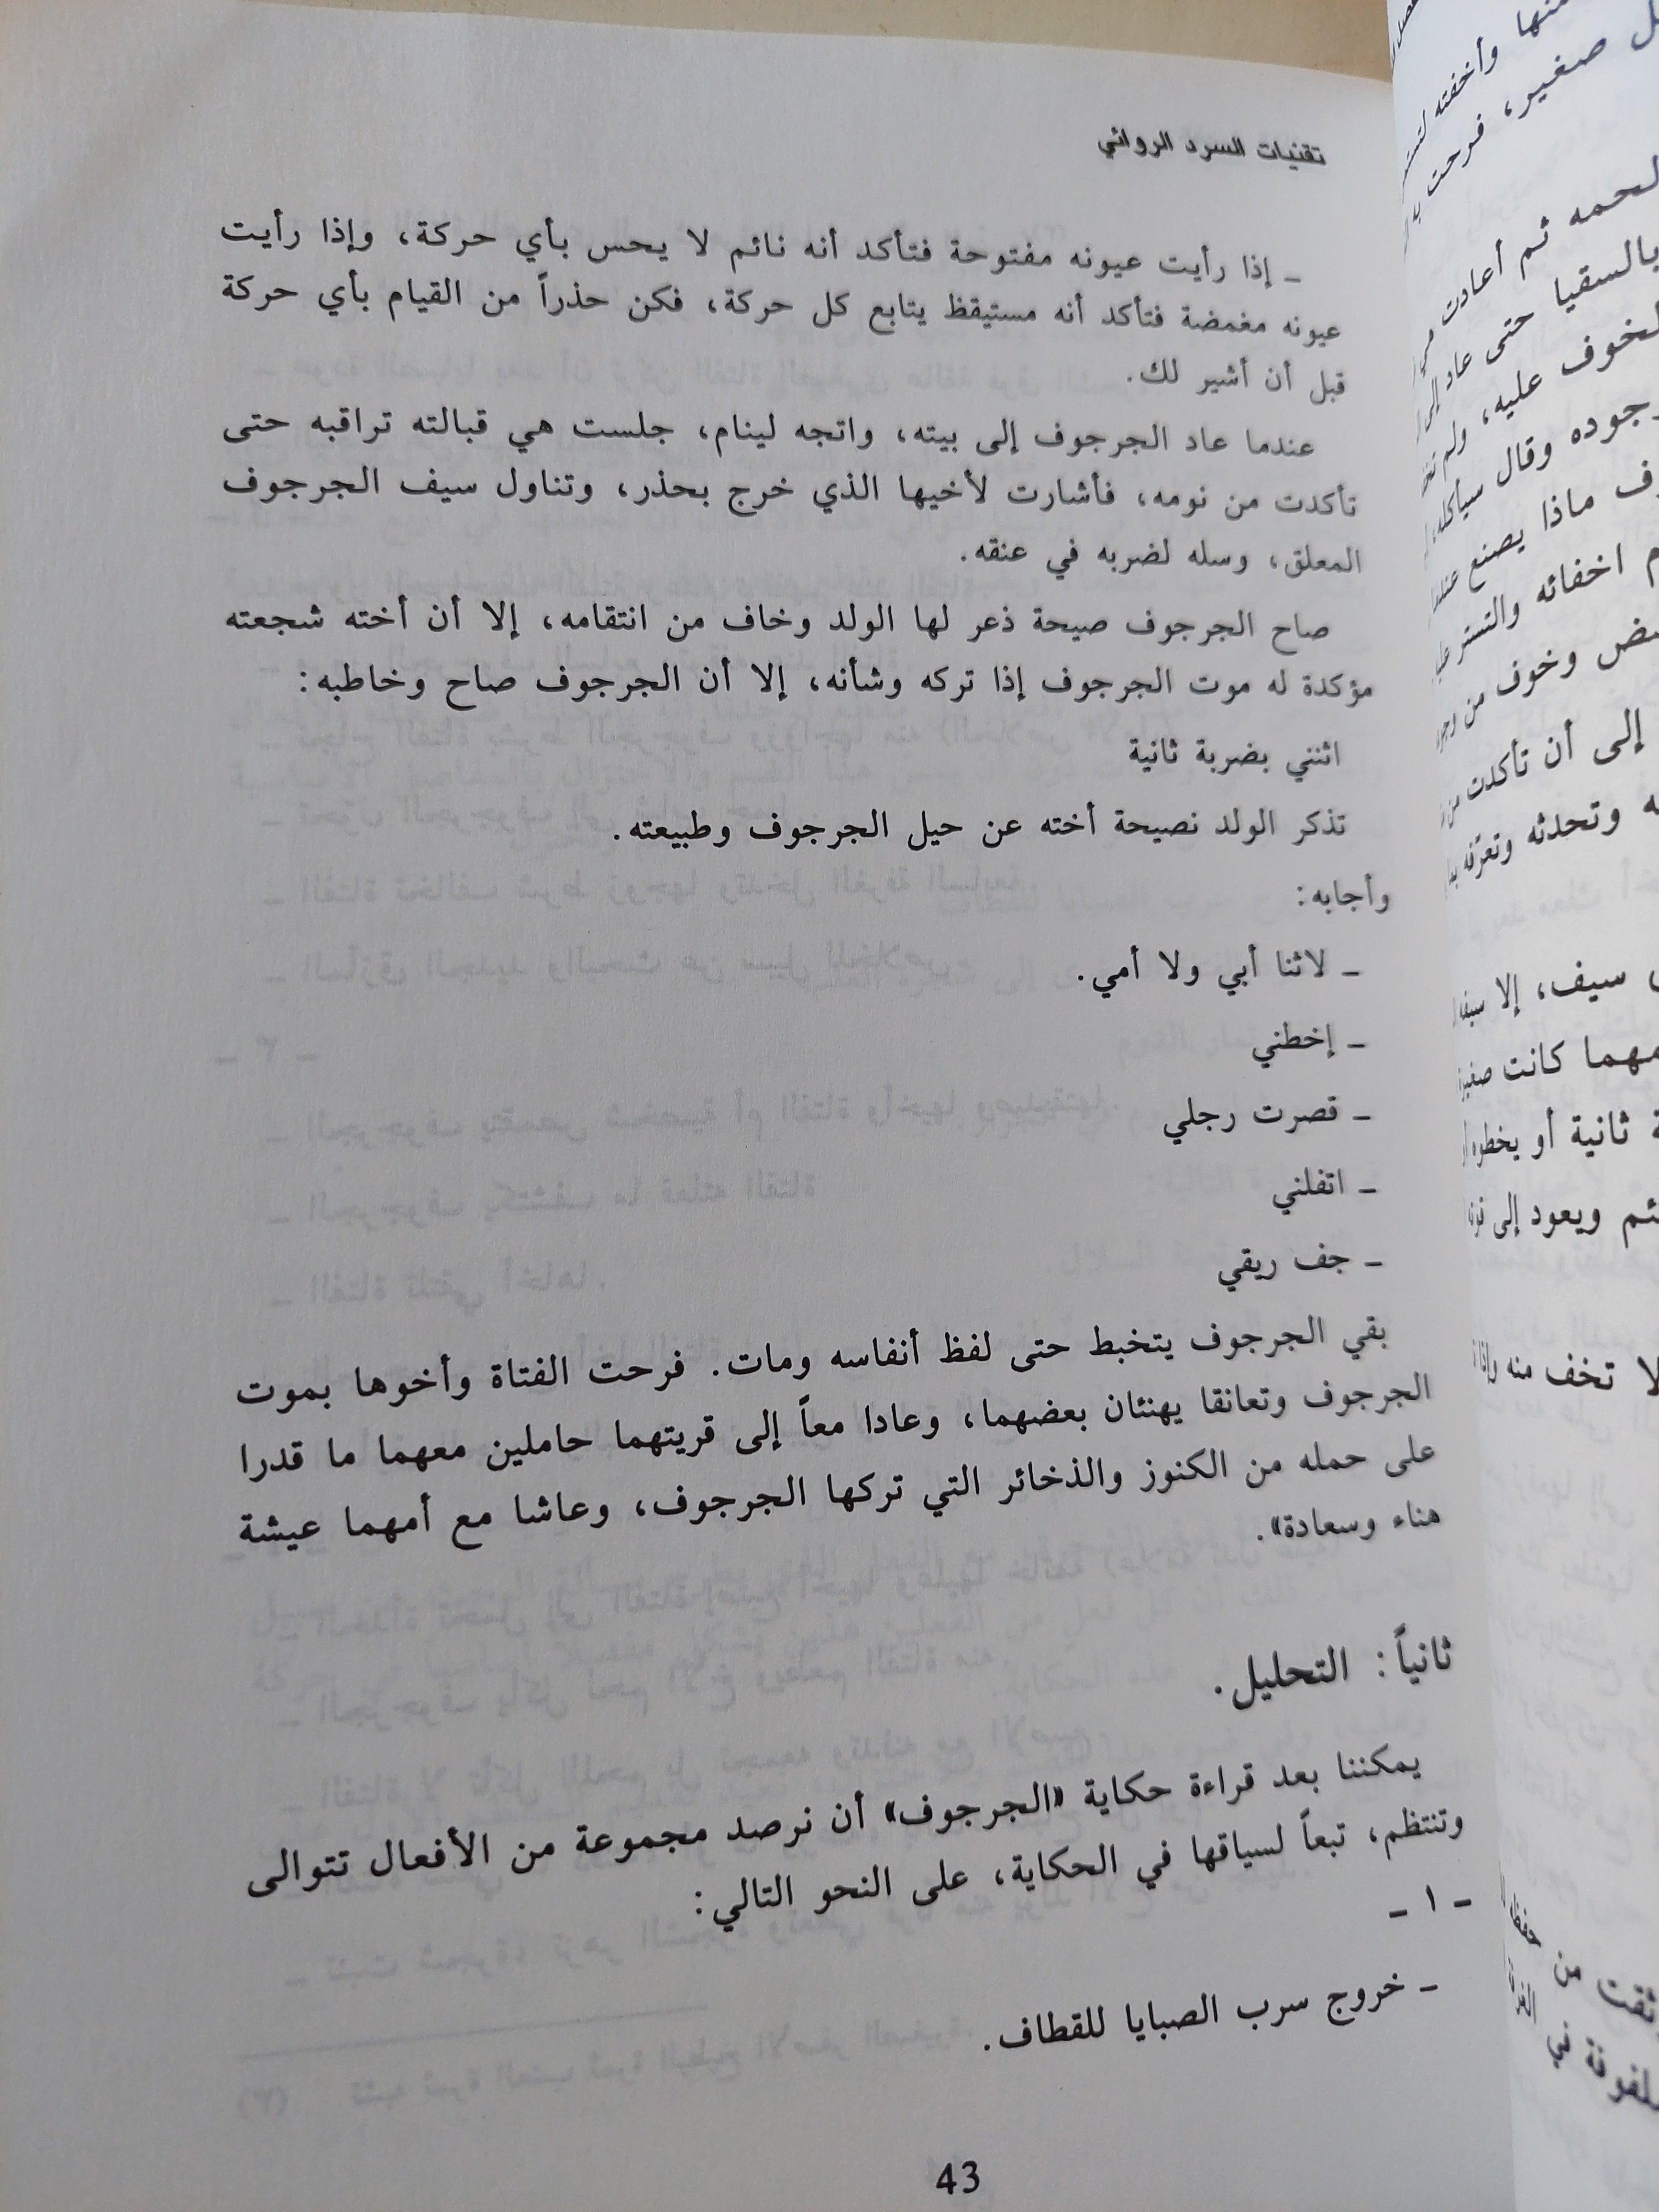 تقنيات السرد الروائي
ـ إذا رأيت عيونه مفتوحة فتأكد أنه نائم لا يحس بأي حركة، وإذا رأيت
عيونه مغمضة فتأكد أنه مستيقظ يتابع كل حركة، فكن حذراً من القيام بأي حركة
قبل أن أشير لك.
عندما عاد الجرجوف إلى بيته، واتجه لينام، جلست هي قبالته تراقبه حتى
تأكدت من نومه، فأشارت لأخيها الذي خرج بحذر، وتناول سيف الجرجوف
المعلق، وسله لضربه في عنقه.
صاح الجرجوف صيحة ذعر لها الولد وخاف من انتقامه، إلا أن أخته شجعته
مؤكدة له موت الجرجوف إذا تركه وشأنه، إلا أن الجرجوف صاح وخاطبه:
اثنني بضربة ثانية
تذكر الولد نصيحة أخته عن حيل الجرجوف وطبيعته.
وأجابه:
ـ لاثنا أبي ولا أمي.
ـ إخطني
ـ قصرت رجلي
ـ اتفلني
ـ جف ريقي
بقي الجرجوف يتخبط حتى لفظ أنفاسه ومات. فرحت الفتاة وأخوها بموت
الجرجوف وتعانقا يهنئان بعضهما، وعادا معاً إلى قريتهما حاملين معهما ما قدرا
على حمله من الكنوز والذخائر التي تركها الجرجوف، وعاشا مع أمهما عيشة
هناء وسعادة».
ثانياً: التحليل.
يمكننا بعد قراءة حكاية «الجرجوف» أن نرصد مجموعة من الأفعال تتوالى
وتنتظم، تبعاً لسياقها في الحكاية، على النحو التالي:
ـ ١ ـ
ـ خروج سرب الصبايا للقطاف.
43
منها وأخفته
صغير، فرحت
لحمه ثم أعادت
بالسقيا حتى عاد
الخوف عليه، ولم
وقال سيأكله
ماذا يصنع
اخفائه والتستر
وخوف من
إلى أن تأكدت من
وتحدثه وتعرّفه
سيف، إلا
مهما كانت
ثانية أو يخطوه
ويعود إلى
لا تخف منه وإذا
من
في